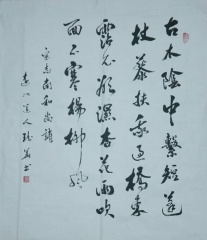 古木陰中繫短篷
杖藜扶我過橋東
霑衣欲濕杏花雨吹
面不寒楊柳風
宋志南和尚詩
人 書